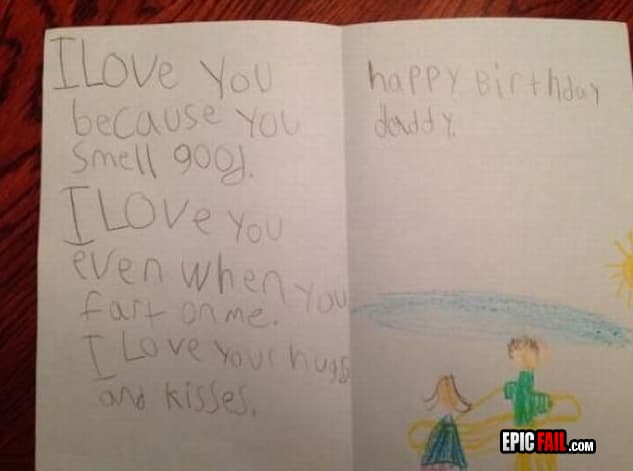 I LOVE YOU
because you
smell good.
I LOVE YOU
even when you
fart on me.
I LOVE your hugs
and kisses.
happy Birthday
daddy.
EPICFAIL.com